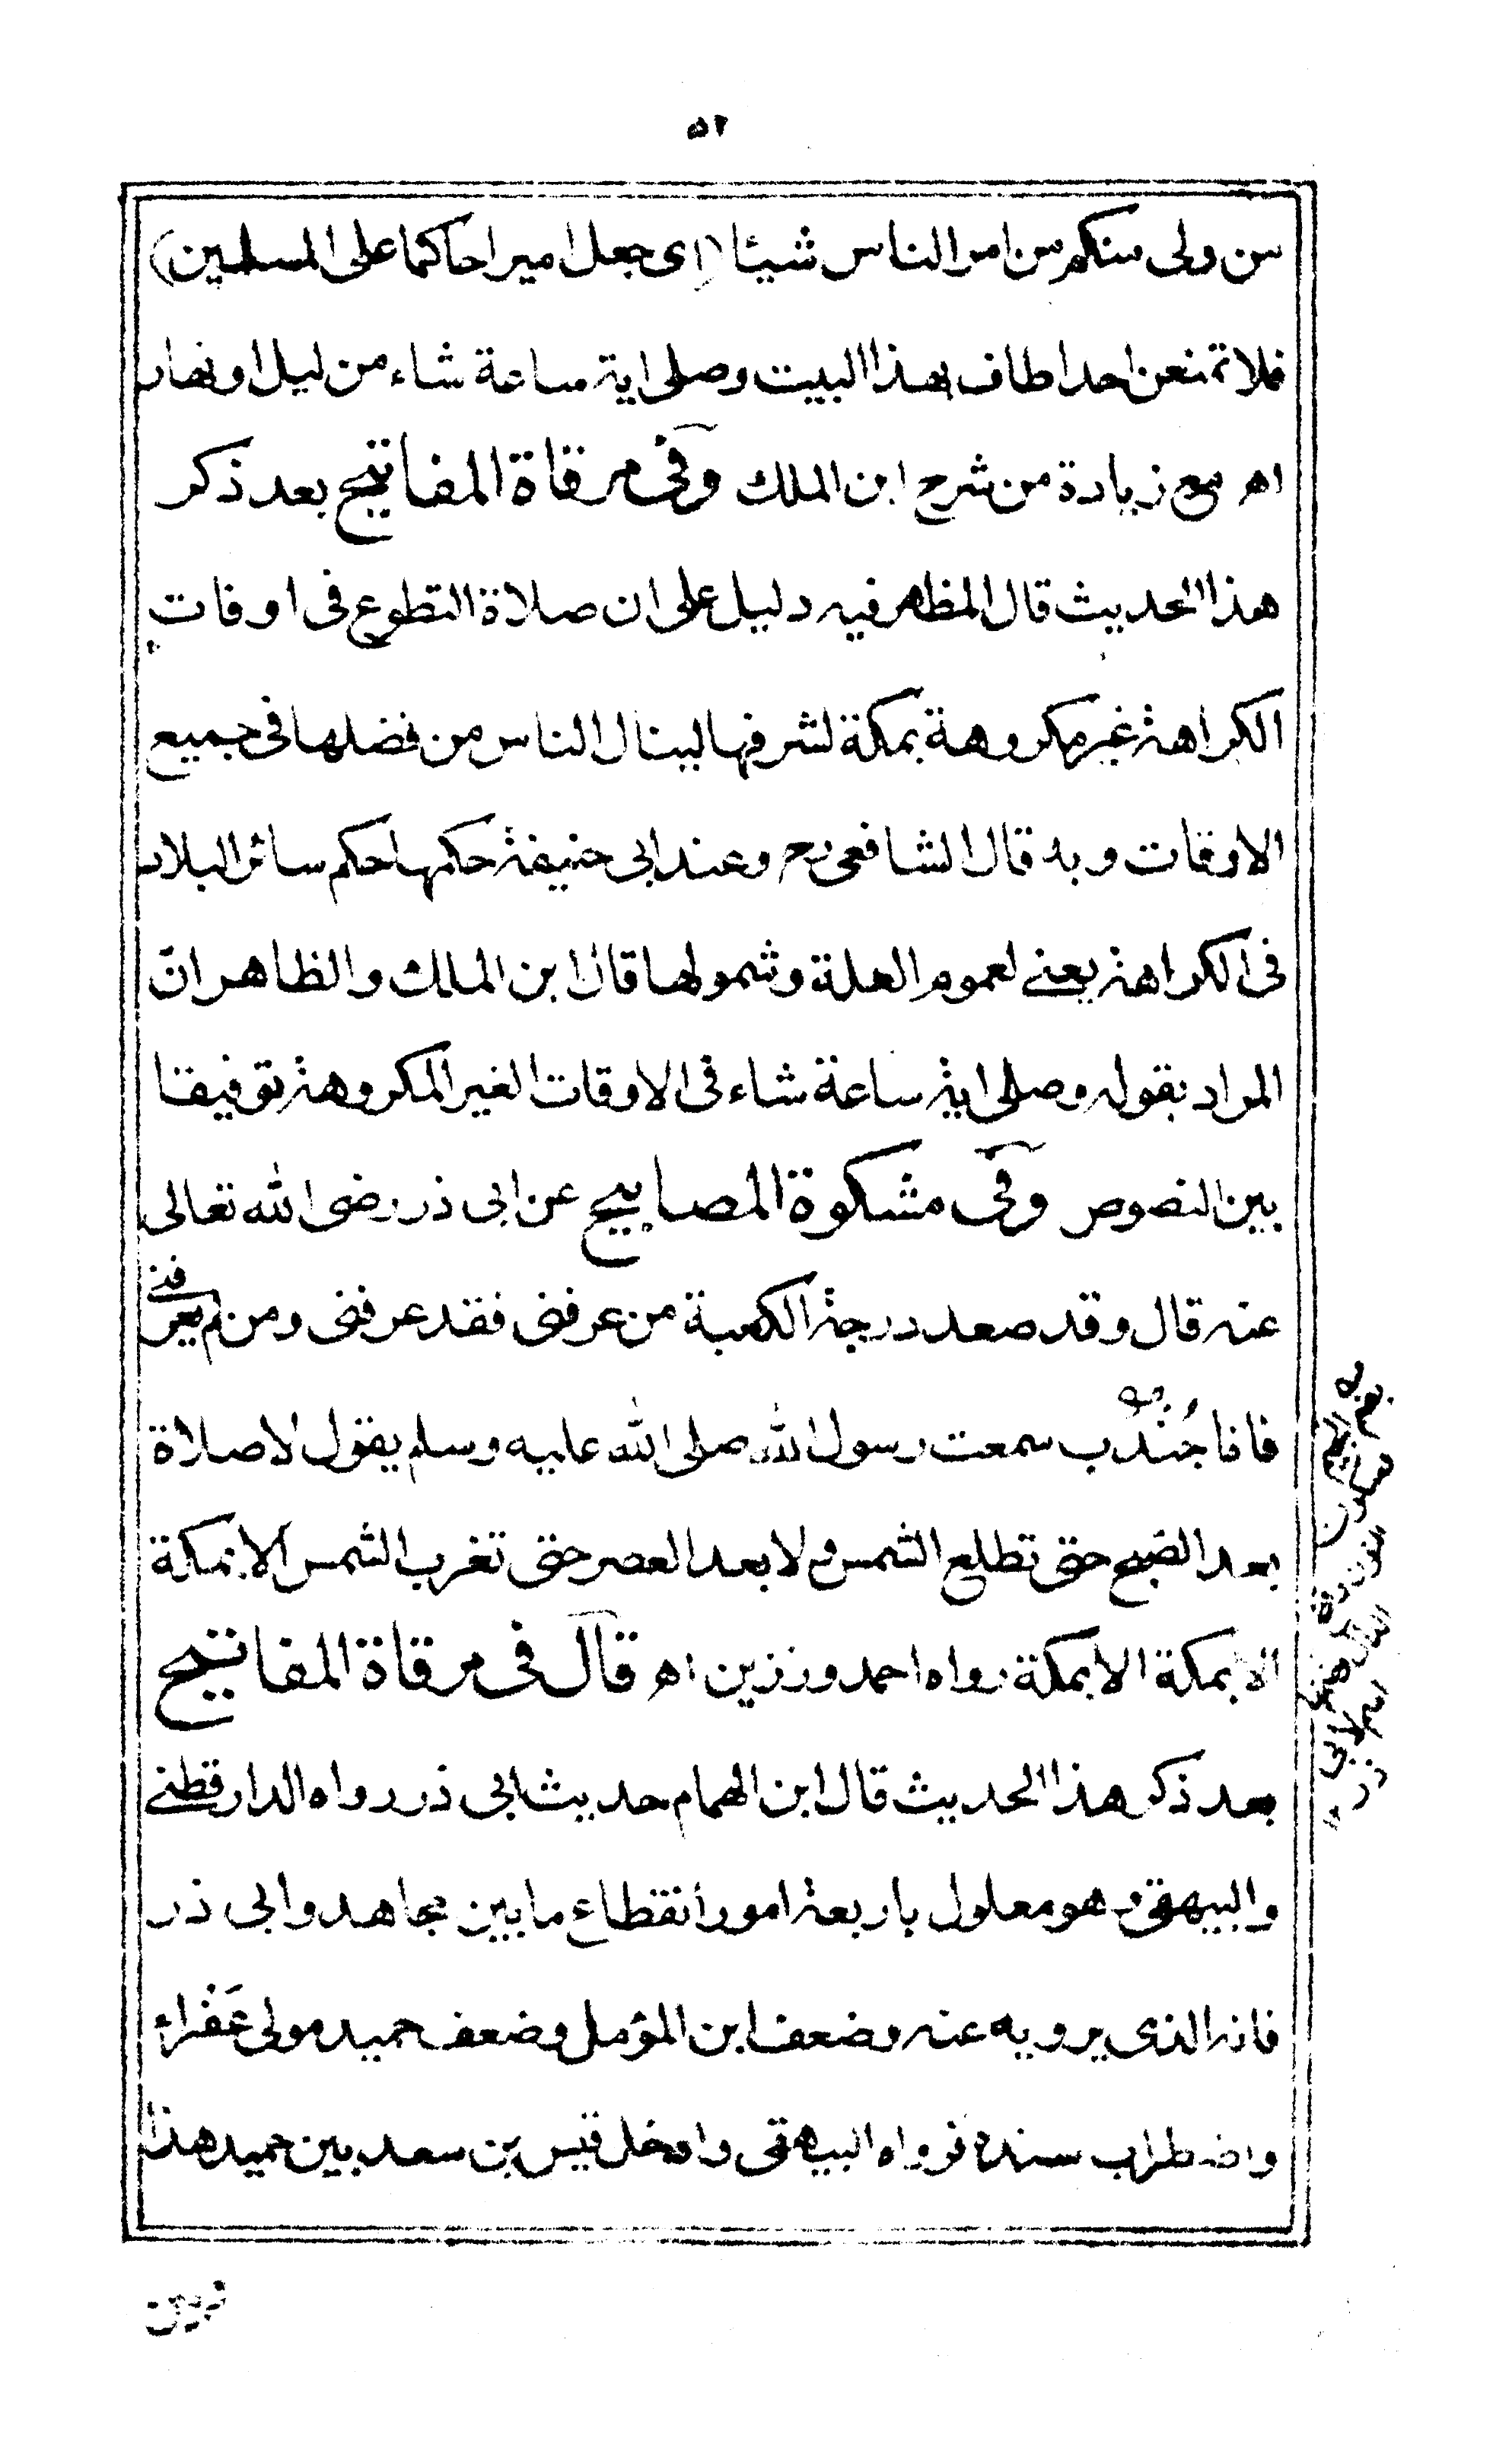 ٥٢
من ولى منكم من امر الناس شيئا (اى جعل اميرا حاكما على المسلمين)
فلا تمنعن احدا طاف بهذا البيت وصلى اية ساعة شاء من ليل او نهار
اهـ مع زيادة من شرح ابن الملك وفى مرقاة المفاتيح بعد ذكر
هذا الحديث قال المظهر فيه دليل على ان صلاة التطوع فى اوقات
الكراهة غير مكروهة بمكة لشرفها لينال الناس من فضلها فى جميع
الاوقات وبه قال الشافعى رح وعند ابى حنيفة حكمها حكم سائر البلاد
فى الكراهة يعنى لعموم العلة وشمولها قال ابن الملك والظاهر انّ
المراد بقوله وصلى اية ساعة شاء فى الاوقات الغير المكروهة توفيقا
بين النصوص وفى مشكوة المصابيح عن ابى ذر رضى الله تعالى
عنه قال وقد صعد درجة الكعبة من عرفنى فقد عرفنى ومن لم يعرفنى
فانا جُنْدُب سمعت رسول الله صلى الله عليه وسلم يقول لا صلاة
بعد الصبح حتى تطلع الشمس ولا بعد العصر حتى تغرب الشمس الا بمكة
الا بمكة الا بمكة رواه احمد ورزين اهـ قال فى مرقاة المفاتيح
بعد ذكر هذا الحديث قال ابن الهمام حديث ابى ذر رواه الدارقطنى
والبيهقى وهو معلول باربعة امور انقطاع ما بين مجاهد وابى ذر
فانه الذى يرويه عنه وضعف ابن المؤمل وضعف حميد مولى عَفْراء
واضطراب سنده فرواه البيهقى وادخل قيس بن سعد بين حميد هذا
به
بضم الجيم
وسكون
النون